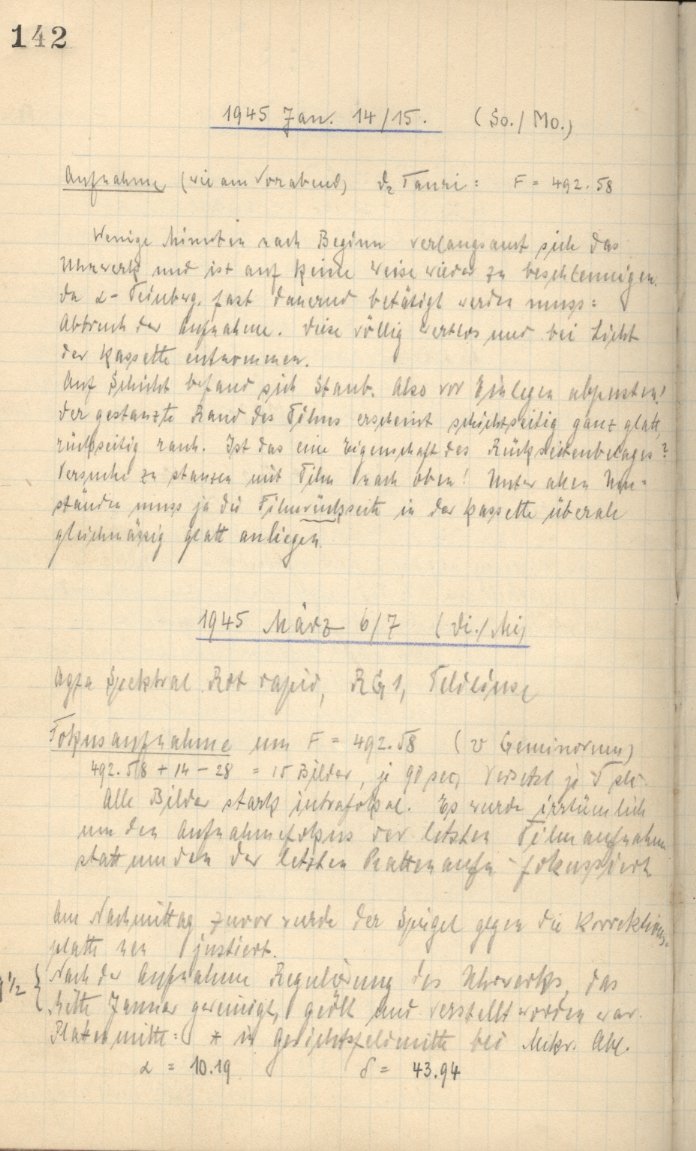 142
1945 Jan. 14/15. (So./Mo.)
Aufnahme (wie am Vorabend) Tauri: F = 492.58
Wenige Minuten nach Beginn verlangsamt sich das
Uhrwerk und ist auf keine Weise wieder zu beschleunigen.
Da α-Feinbewg. fast dauernd betätigt werden muss:
Abbruch der Aufnahme. Diese völlig wertlos und bei Licht
der Kassette entnommen.
Auf Schicht befand sich Staub. Also vor Einlegen abpusten!
Der gestanzte Rand des Films erscheint schichtseitig ganz glatt
rückseitig rauh. Ist das eine Eigenschaft des Rückseitenbelages?
Versuche zu stanzen mit Film nach oben! Unter allen Um-
ständen muss ja die Filmrückseite in der Kassette überall
gleichmässig glatt anliegen.
1945 März 6/7 (Di./Mi)
Agfa Spektral Rot rapid, RG1, Feldlinse
Fokusaufnahme um F = 492.58 (υ Geminorum)
492.58 + 14 - 28 = 15 Bilder, je 90 sec, versetzt je 5
Alle Bilder stark intrafokal. Es wurde irrtümlich
um den Aufnahmefokus der letzten Filmaufnahm
statt um den der letzten Plattenaufn. fokussiert
Am Nachmittag zuvor wurde der Spiegel gegen die Korrektions-
platte neu justiert.
Nach der Aufnahme Regulierung des Uhrwerks, das
Mitte Januar gereinigt, geölt und verstellt worden war.
Plattenmitte: * in Gesichtsfeldmitte bei Mikr. Abl.
α = 10.19 δ = 43.94